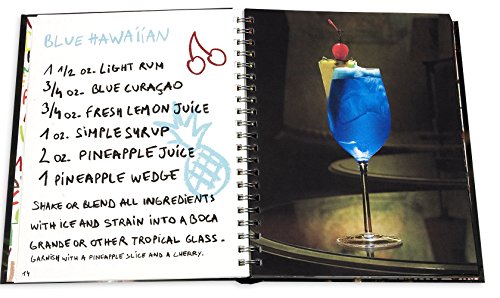 BLUE HAWAIIAN
1 1/2 OZ. LIGHT RUM
3/4 OZ. BLUE CURAÇAO
3/4 OZ. FRESH LEMON JUICE
1 OZ. SIMPLE SYRUP
2 OZ. PINEAPPLE JUICE
1 PINEAPPLE WEDGE
SHAKE OR BLEND ALL INGREDIENTS
WITH ICE AND STRAIN INTO A BOCA
GRANDE OR OTHER TROPICAL GLASS.
GARNISH WITH A PINEAPPLE SLICE AND A CHERRY.
14